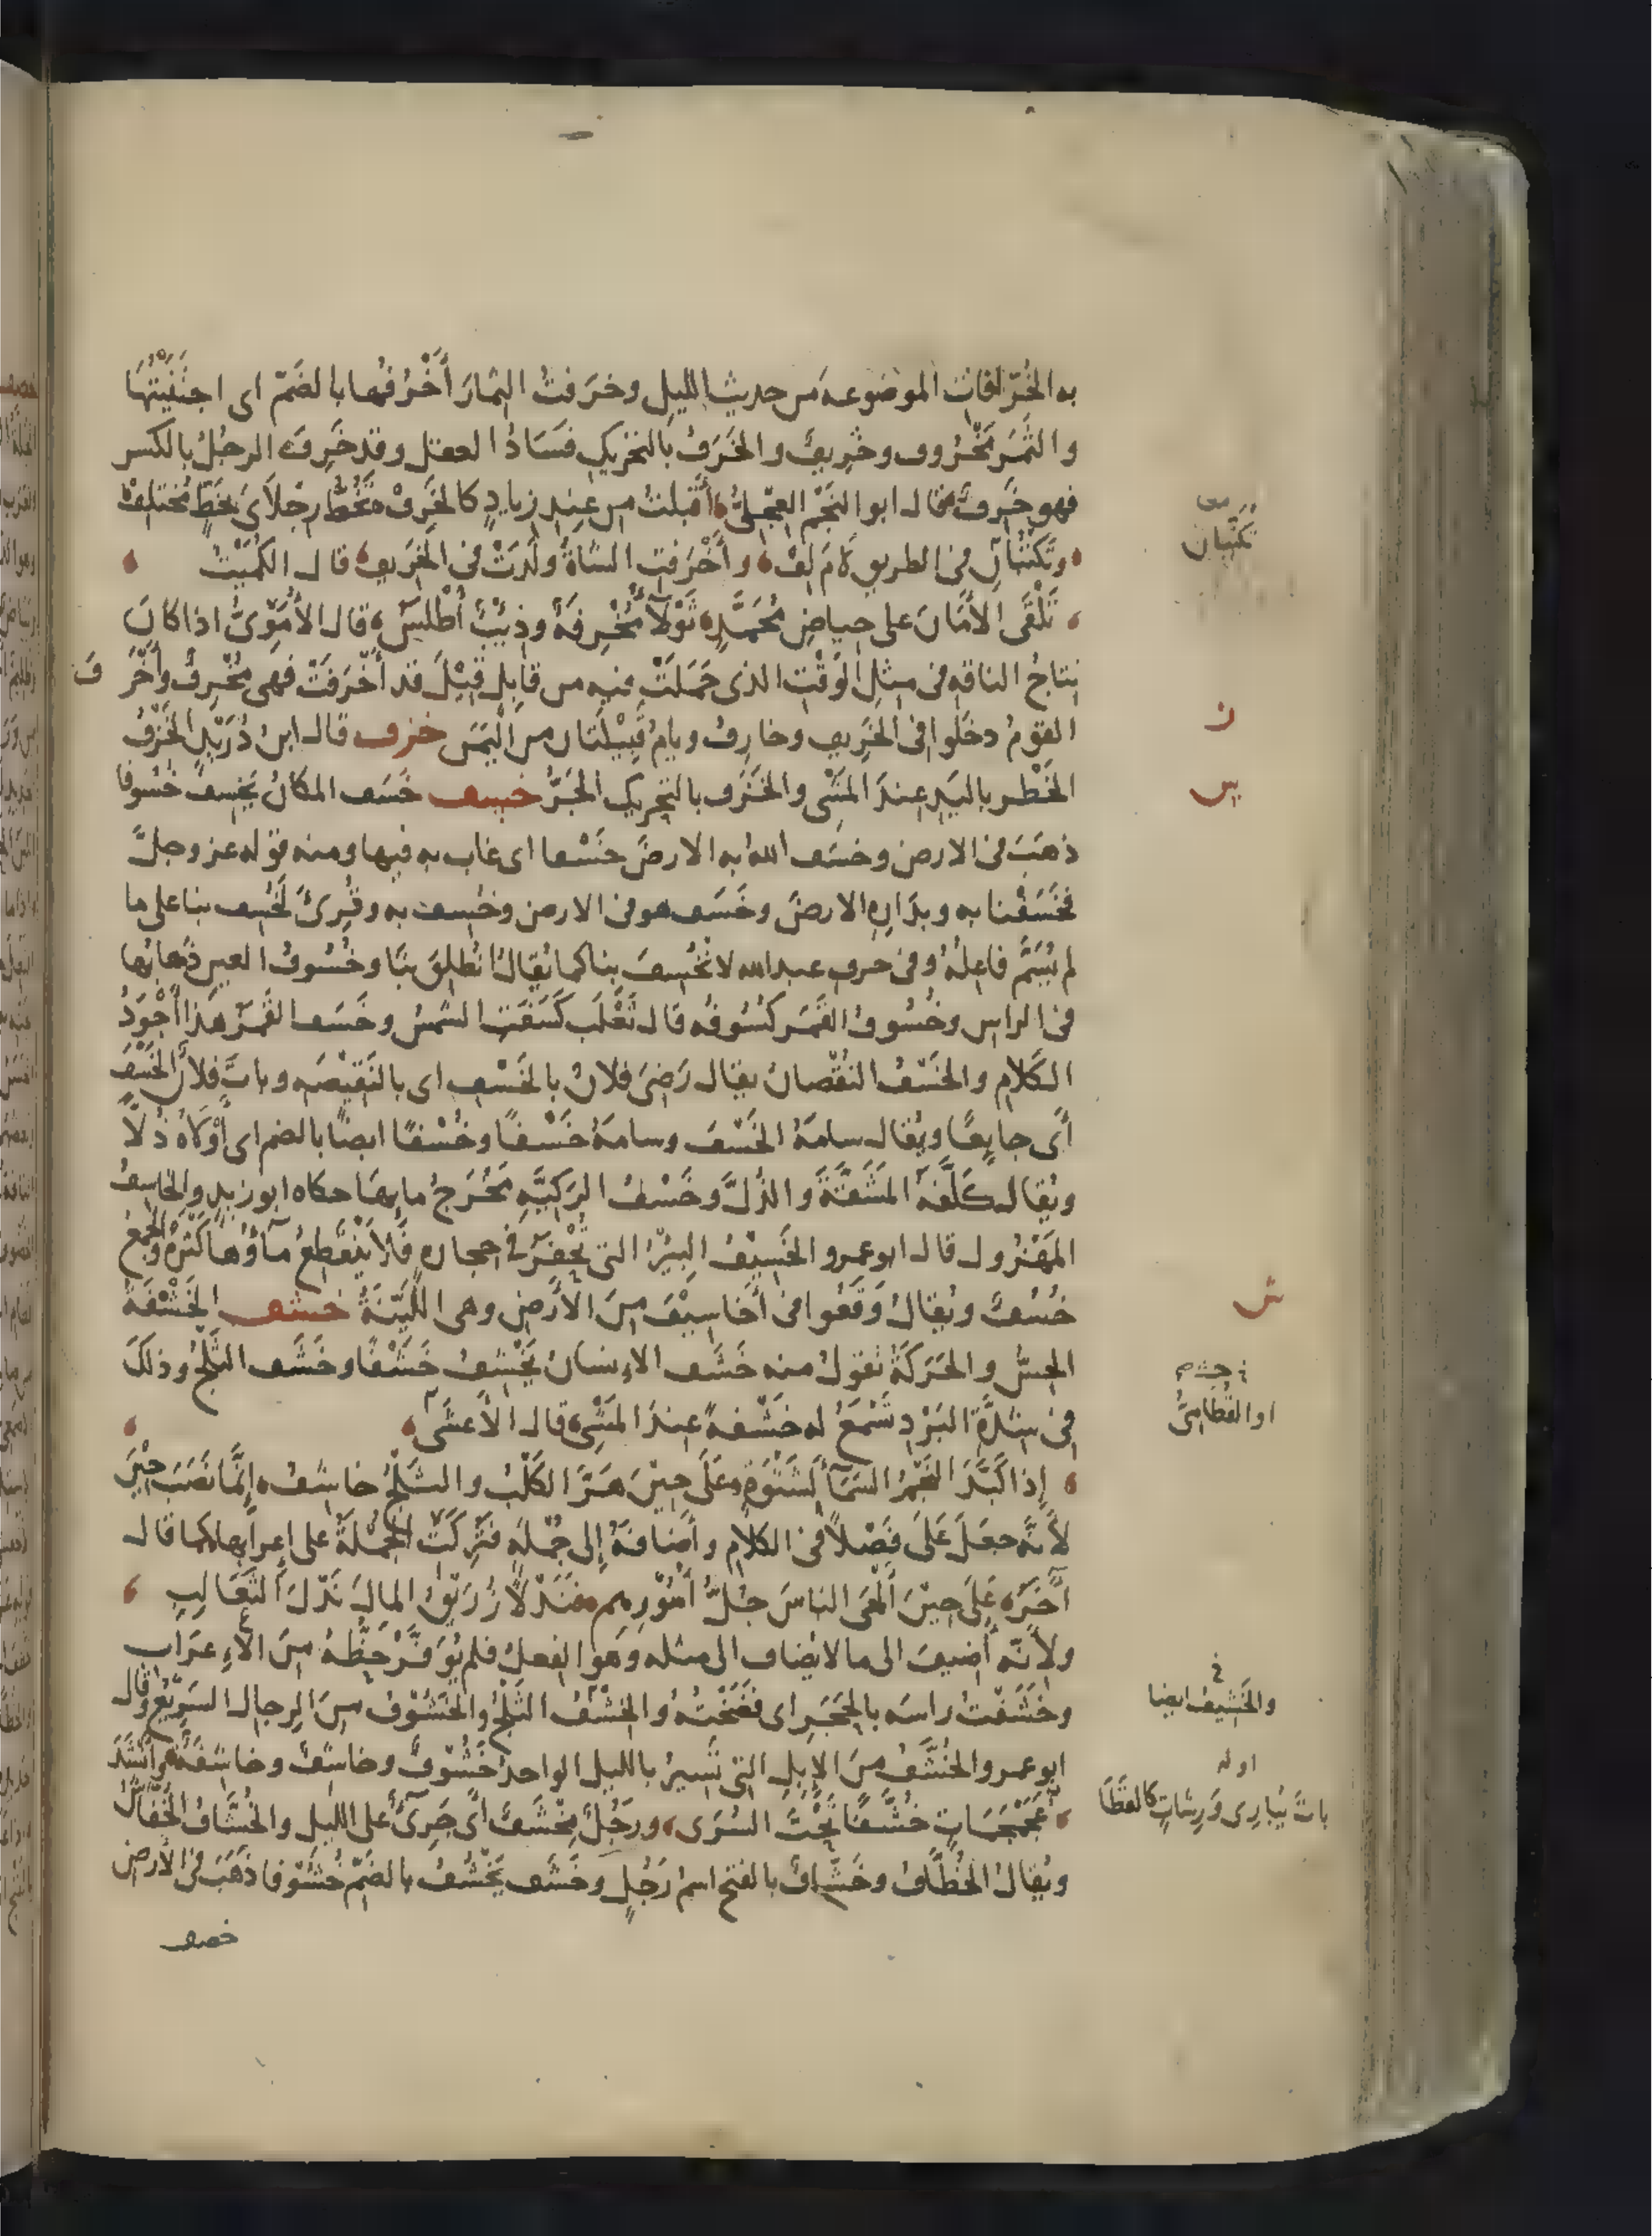 به الخُرّافات الموضوعه من حديث الليل وخرَفتُ الثمارَ أَخْرُفُها بالضَمّ اى اجتنَيْتُهَا
والثمَر مَخْروف وخَرِيفٌ والخَرَفُ بالتحْريكِ فسَادُ العقل وقد خَرِفَ الرجُلُ بالكسر
فهو خَرِفٌ قال ابو النجْم العِجْلىّ أَقبلتُ من عِندِ زِيادٍ كالخَرِفْ تَخُطُّ رِجْلاَىَ بخَطٍّ مُختلِفْ
وتَكَتّبَانِ فى الطريقِ لامَ لِفْ وأَخْرَفَتِ الشاةُ ولَدَتْ فى الخَرِيفِ قال الكُمَيْتُ
تَلْقَى الأمَانَ على حياضِ مُحَمَّدٍ ثَوْلاءُ مُخْرِفَةٌ وذِئْبٌ أَطْلَسُ قال الأُمَوِىُّ اذا كانَ
نتاجُ الناقه فى مثل الوَقْت الذى حَمَلَتْ فيه من قابلٍ قِيْلَ قد أَخْرَفَتْ فهى مُخْرِفٌ وأَخْرَفَ
القومُ دخَلُوا فى الخَرِيفِ وخارِفُ ويامُ قَبِيْلَتان من اليَمَن خزف قال ابنُ دُرَيْدٍ الخَزْفُ
الخَطْر باليَدِ عندَ المَشْى والخَزَف بالتحريكِ الجَرُّ خسف خَسَف المكانُ يَخْسِفُ خُسُوفا
ذهَبَ فى الارض وخسَف الله به الارضَ خَسْفا اى غاب به فيها ومنه قوله عز وجلّ
فخَسَفْنا به وبدَارِه الارضَ وخَسَف هو فى الارض وخُسِف به وقُرِئَ لَخُسِف بنا على ما
لم يُسَمَّ فاعِلُهُ وفى حرف عبد الله لانْخُسِفَ بنا كما يُقالُ انْطُلِقَ بِنَا وخُسُوفُ العين ذَهابُها
فى الراس وخُسُوفُ القمَر كُسُوفُه قال ثَعْلَب كَسَفَتِ الشمسُ وخَسَف القمَرُ هَذا أَجْوَدُ
الكَلام والخَسْفُ النُقْصانُ يقال رَضِىَ فلانٌ بالخَسْفِ اى بالنَقِيْصَه وباتَ فلانٌ الخَسْفَ
أَى جايِعًا ويُقال سامَهُ الخَسْفَ وسامَهُ خَسْفًا وخُسْفًا ايضًا بالضم اى أَوْلَاهُ ذُلّاً
ويُقال كَلَّفَهُ المَشَقَّةَ والذُلَّ وخَسْفُ الرَكِيَّهِ مَخْرَجُ مايِهَا حكاه ابو زيدٍ والخاسِفُ
المَهْزُول قال ابو عمرو الخَسِيْفُ البِئْرُ التى تُحْفَرُ فى حجارهٍ فَلَا يَنْقَطِعُ مَآؤُهَا كَثْرَةً والجمعُ
خُسُفٌ ويُقالُ وَقَعُوا فى أَخاسِيْفَ مِنَ الأَرضِ وهى اللَّيِّنَةُ خشف الخَشْفَةُ
الحِسُّ والحَرَكَةُ تقولُ منه خَشَف الإنسانُ يَخْشِفُ خَشْفًا وخَشَف الثَلْجُ وذلكَ
فى شِدَّةِ البَرْدِ تَسْمَعُ له خَشْفَةً عندَ المَشْىِ قال الأَعشَى
إذا كَبَّدَ النَجْمُ السَمَآءَ بشَتْوَةٍ عَلَى حِيْنَ هَرَّ الكَلْبُ والثَلْجُ خاشِفُ إِنَّما نَصَبَ حِيْنَ
لأَنَّه جعَلَ عَلَى فَصْلاً فى الكلام وأَضَافَهُ إلى جُمْلَهٍ فتُرِكَتِ الجُمْلَةُ على إعرابِها كما قال
آخَرُ عَلَى حِيْنَ أَلْهَى الناسَ جُلُّ أُمُوْرِهِم فنَدْلًا زُرَيْقُ المالَ نَدْلَ الثَعَالِبِ
ولأَنّه أُضيفَ الى ما لا يُضاف الى مثله وهوَ الفعلُ فلم يُوَفَّرْ حَظُّهُ مِنَ الإِعرَاب
وخَشَفْتُ راسَه بالحَجَرِ اى فضَخْتُهُ والخَشْفُ الثَلْجُ والخَشُوْف مِنَ الرِجالِ السَرِيْعُ وقال
ابو عمرو الخُشَّفُ مِنَ الإِبِلِ التى تَسِيرُ بالليلِ الواحدُ خَشُوْفٌ وخاشفٌ وخاشفَةٌ وأَنشَدَ
عَجَمْجَمَاتٍ خُشَّفًا تَحْتَ السُرَى ورَجُلٌ مِخْشَفٌ اى جَرِىءٌ على الليل والخُشَّافُ الخُفَّاشُ
ويُقالُ الخُطَّافُ وخَشَّافٌ بالفتح اسمُ رَجُلٍ وخَشَف يَخْشُفُ بالضَمّ خُشُوْفا ذَهَبَ فى الارضِ
خصف
تُكَتّبَان
ز
س
ش
او القُطَامىُّ
والخَشِيفُ ايضا
اوله
باتَ يُبارِى وَرِشاتٍ كالقَطَا